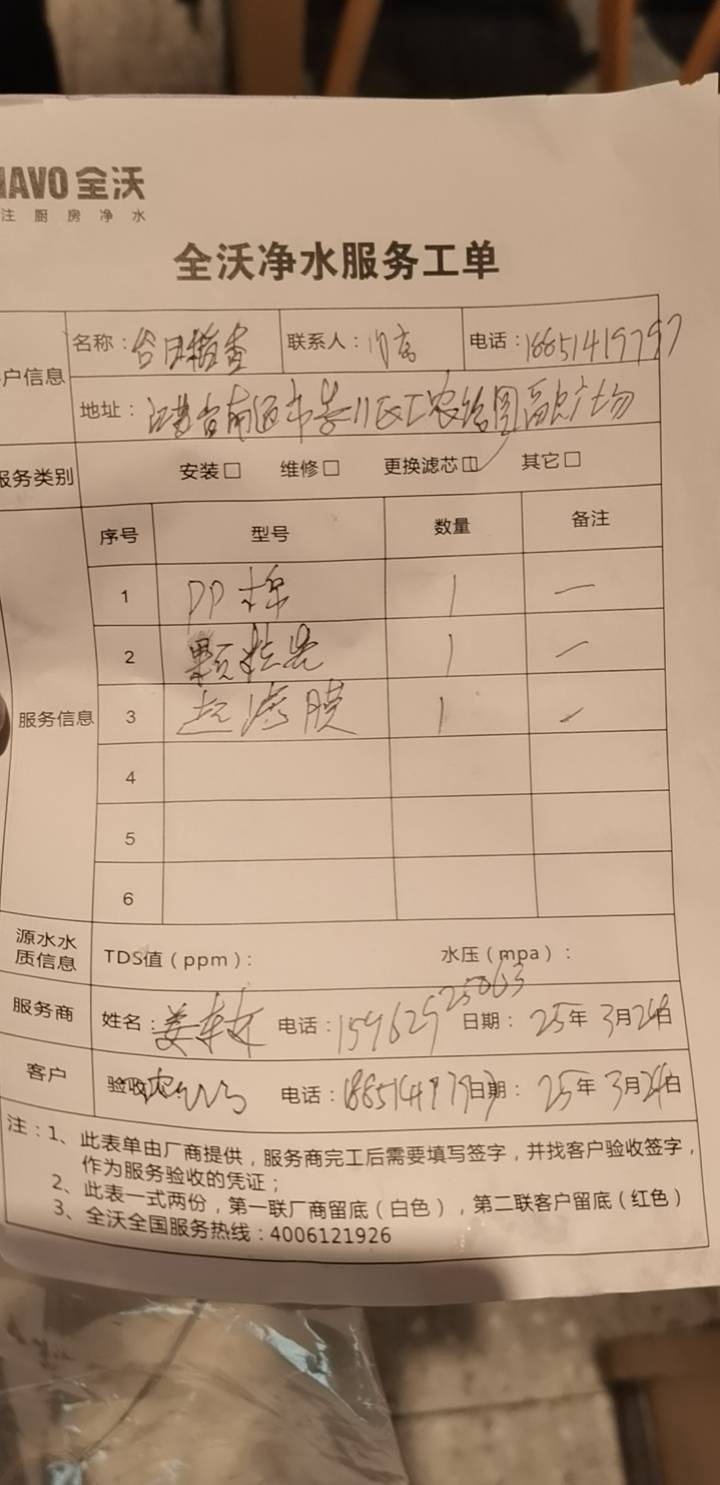 NAVO 全沃
注厨房净水
全沃净水服务工单
户信息 名称: 联系人: 电话:18851419797
地址:江苏省南通市崇川区工农路圆融广场
服务类别 安装□ 维修□ 更换滤芯□✓ 其它□
服务信息 序号 型号 数量 备注
1 PP棉 1 一
2 颗粒炭 1 一
3 超滤膜 1 一
4
5
6
源水水质信息 TDS值(ppm): 水压(mpa):
服务商 姓名: 电话:15962925063 日期:25年3月24日
客户 验收 电话:18851419797 日期:25年3月24日
注:1、此表单由厂商提供,服务商完工后需要填写签字,并找客户验收签字,
作为服务验收的凭证;
2、此表一式两份,第一联厂商留底(白色),第二联客户留底(红色)
3、全沃全国服务热线:4006121926